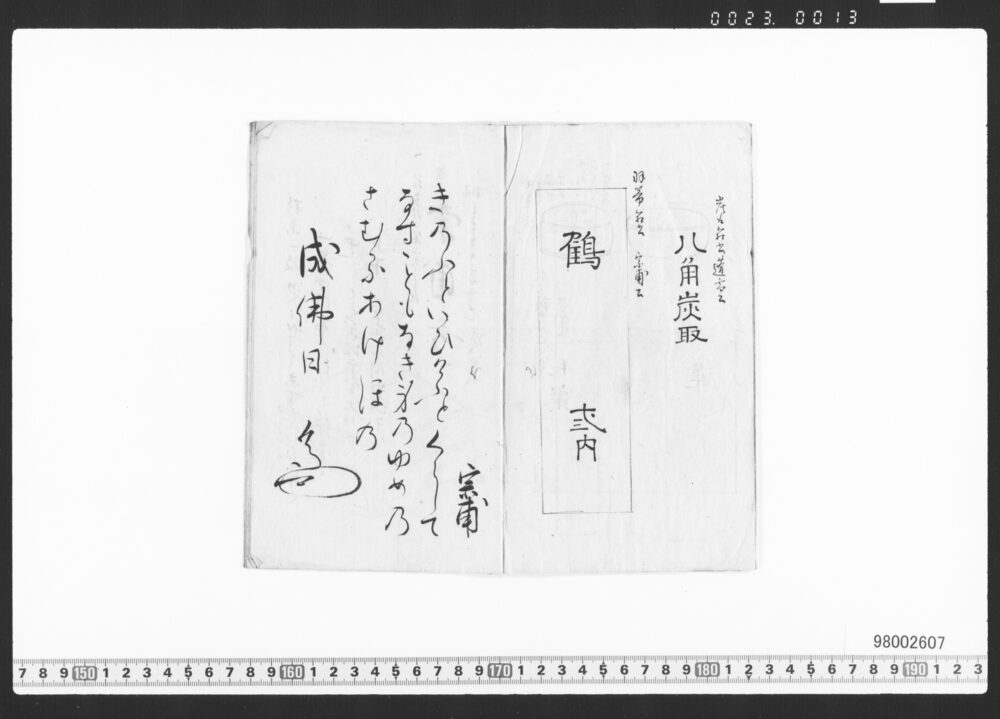 八角炭取
羽箒 宗甫公
鶴 弎内
宗甫
きのふといひけふとくらして
なすこともなき身のゆめの
さむるあけほの
成佛日
0023. 0013
98002607
7 8 9 150 1 2 3 4 5 6 7 8 9 160 1 2 3 4 5 6 7 8 9 170 1 2 3 4 5 6 7 8 9 180 1 2 3 4 5 6 7 8 9 190 1 2 3